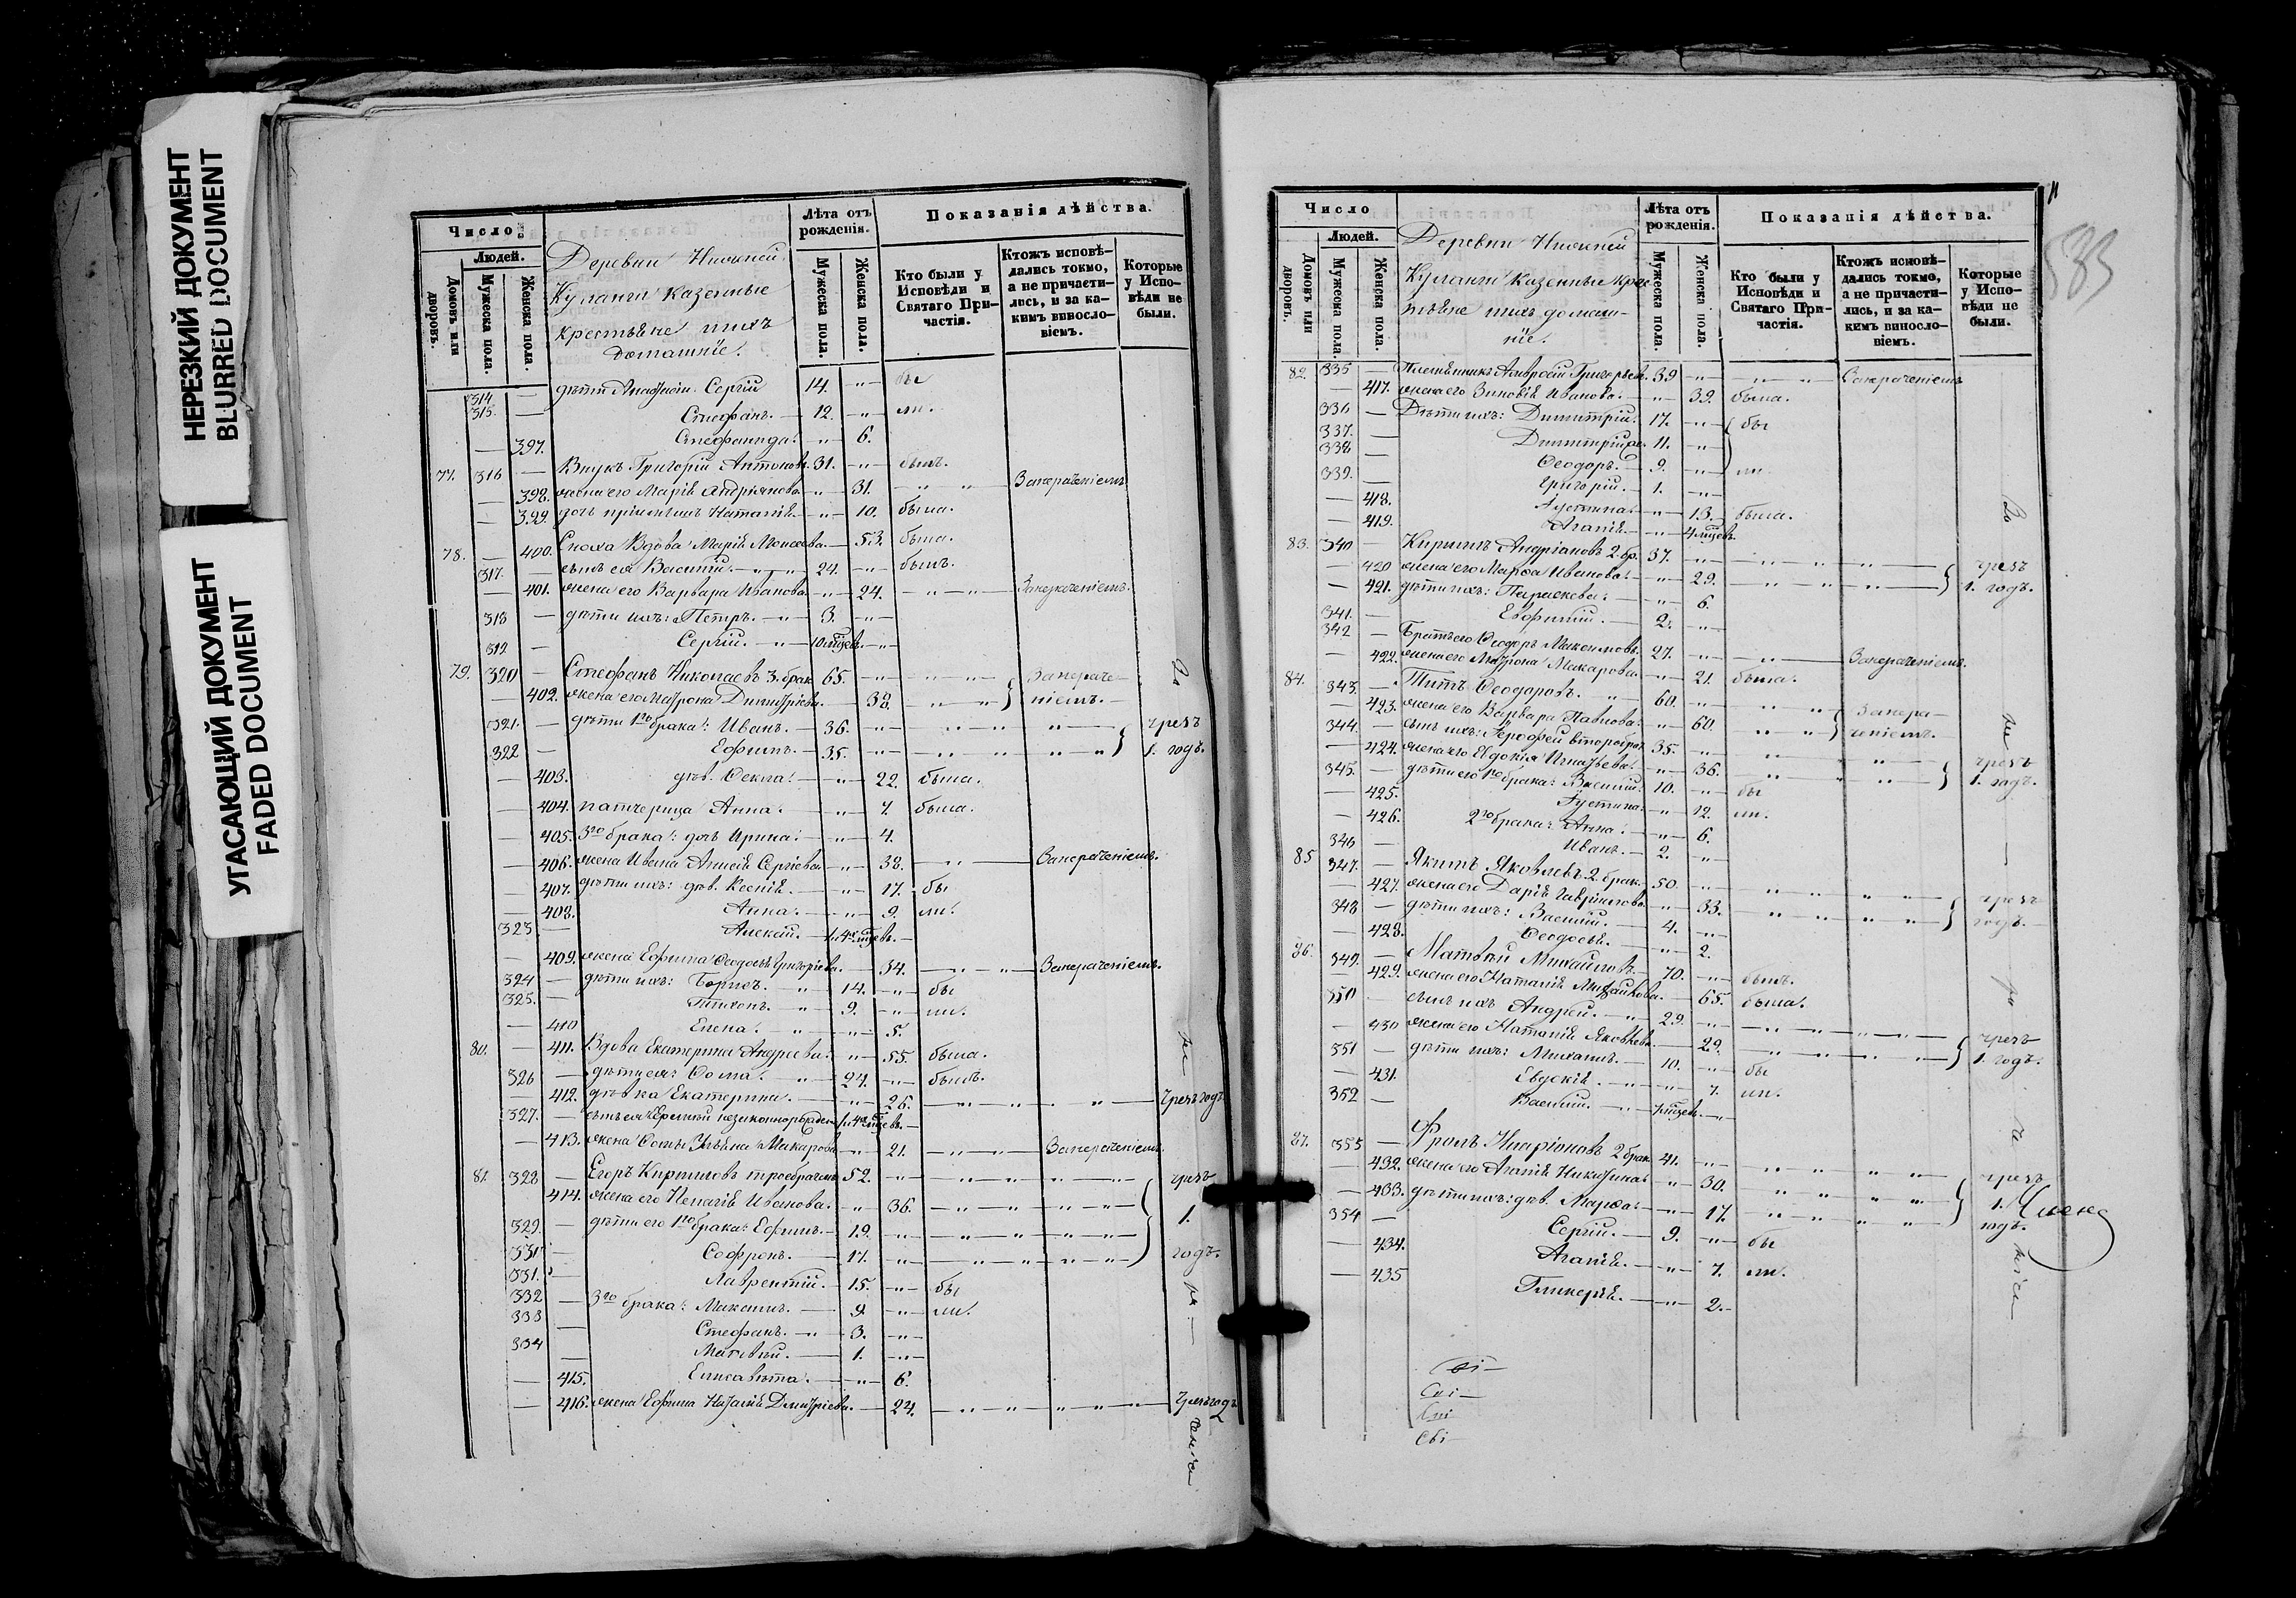 НЕРЕЗКИЙ ДОКУМЕНТ
BLURRED DOCUMENT
УГАСАЮЩИЙ ДОКУМЕНТ
FADED DOCUMENT
Число
Людей.
Домовъ или дворовъ.
Мужеска пола.
Женска пола.
Деревни Нижней
Куланги казенные
крестьяне и ихъ
домашніе.
Лѣта отъ рожденія.
Мужеска пола.
Женска пола.
Показанія дѣйства.
Кто были у Исповѣди и Святаго Причастія.
Ктожъ исповѣдались токмо, а не причастились, и за какимъ винословіемъ.
Которые у Исповѣди не были.
314. — дѣти Сергій 14. —"— бы
315. — Стефанъ. — 12. —"— ли.
— 397. Стефанида. —"— 6.
77. 316 — Внукъ Григорій Антоновъ. 31. —"— былъ.
— 398. жена его Марія Андріянова —"— 31. —"—"— Заперваченіемъ
— 399. дочь Наталія. —"— 10. была.
78. — 400. Сноха Вдова Марія Моисеева. — 53. была.
317. — сынъ ея Василій. —"—"— 24. —"— былъ.
— 401. жена его Варвара Иванова. —"— 24. —"—"—
318 — дѣти ихъ: Петръ. —"— 3. —"—
319 — Сергій. —"— 10 мѣсцевъ. —"—
79. 320 — Стефанъ Николаевъ 3. брак. 65. —"—"—"—
— 402. жена его Матрона Димитріева. — 38. —"—"—
321. — дѣти 1го брака: Иванъ. — 36. —"—"—"—"— чрезъ
322 — Ефимъ. — 35. —"—"—"—"— 1. годъ.
— 403. дѣв. Ѳекла. —"— 22. была.
— 404. патчерица Анна. —"— 7. была.
— 405. 3го брака: дочь Ирина. —"— 4.
— 406. жена Ивана Анисія Сергіева. —"— 38. —"—
— 407. дѣти ихъ: дѣв. Ксенія. —"— 17. бы
— 408. Анна. —"— 9. ли.
323 — Алексій. —
— 409. жена Ефима Ѳеодосья Григоріева. — 34. —"—"—
324 — дѣти ихъ: Борисъ. —"— 14. —"— бы
325. — Тихонъ. —"— 9. —"— ли.
— 410 Елена. —"—"— 5.
80. — 411. Вдова Екатерина Андреева. —"— 55. была.
326 — дѣти ея: Ѳома. —"— 24. —"— былъ.
— 412. дѣвка Екатерина. —"— 26. —"—"—"— Чрезъ годъ
327. — сынъ ея незаконнорожден.
— 413. жена Ѳомы Ульяна Макарова —"— 21. —"—"—
81. 328 — Егоръ Кириловъ троебрачн. 52. —"—"—"—"— чрезъ
414. жена его Пелагія Иванова. —"— 36. —"—"—"—"—
329. — дѣти его 1го брака: Ефимъ. — 19. —"—"—"—"— 1.
330 — Софронъ. — 17. —"—"—"—"— годъ.
331. — Лаврентій. — 15. —"— бы
332 — 3го брака: Максимъ. — 9. —"— ли.
333 — Стефанъ. —"— 3. —"—
334 — Матвѣй. — 1. —"—
— 415. Елисавета. —"— 6.
— 416. жена Ефима Наталія Димитріева. — 24. —"—"—"—"— Чрезъ годъ
Число
Людей.
Домовъ или дворовъ.
Мужеска пола.
Женска пола.
Деревни Нижней
Куланги Казенные крес
тьяне и ихъ домаш-
ніе.
Лѣта отъ рожденія.
Мужеска пола.
Женска пола.
Показанія дѣйства.
Кто были у Исповѣди и Святаго Причастія.
Ктожъ исповѣдались токмо, а не причастились, и за какимъ винословіемъ.
Которые у Исповѣди не были.
583
82. 335 — Племянникъ Амвросій Григорьевъ. 39 —"—"—"—
— 417. жена его Зиновія Иванова. —"— 39. была.
336 — Дѣти ихъ: Димитрій. 17. —"— бы
337. — Димитрій же. 11. —"—
338 — Ѳеодоръ. — 9. —"— ли.
339. — Григорій. — 1. —"—
— 418. Іустина. —"— 13. была.
— 419. Агапія. —"— 4 мѣсцев.
83. 340 — Кирилъ Андріановъ 2. бр. 37. —"—"—"—"— чрезъ
— 420 жена его Марѳа Иванова. —"— 29. —"—"—"— 1. годъ.
— 421. дѣти ихъ: Параскева. —"— 6.
341. — Евфимій. — 2. —"—
342 — Братъ его Ѳеодоръ Максимовъ. 27. —"—"—
— 422. жена его Матрона Макарова. —"— 21. была.
84. 343. — Титъ Ѳеодоровъ. —"— 60. —"—"—"—
— 423. жена его Варвара Павлова. —"— 60. —"—"—
344. — сынъ ихъ: Іероѳей второбрач. 35. —"—"—"— чрезъ
— 424. жена его Евдокія Игнатьева. —"— 36. —"—"—"— 1. годъ.
345. — дѣти его 1го брака: Василій. 10. —"— бы
— 425. Іустина. —"— 12. ли.
— 426. 2го брака: Анна. —"— 6.
346 — Иванъ. — 2. —"—
85 347. — Якимъ Яковлевъ 2. брак. 50. —"—"—"—"— чрезъ
— 427. жена его Дарія Гавриилова. —"— 33. —"—"—"—"— годъ.
348 — дѣти ихъ: Василій. — 4. —"—
— 428. Ѳеодосья. —"— 2.
86. 349. — Матѳей Михайловъ — 70. —"— былъ.
— 429. жена его Наталія — 65. была.
350 — сынъ ихъ Андрей. —"— 29. —"—"—"—"— чрезъ
— 430 жена его Наталія Яковлева. — 29. —"—"—"— 1. годъ.
351 — дѣти ихъ: Михаилъ. — 10. —"— бы
— 431. Евдокія. —"—"— 7. ли.
352 — Василій. —"— мѣсцев. —"—
87. 353 — Фролъ Иларіоновъ 2 брак. 41. —"—"—"—"— чрезъ
— 432. жена его Агапія Никитина. —"— 30. —"—"—"— 1.
— 433. дѣти ихъ: дѣв. Марѳа. —"— 17. —"—"—"— годъ.
354 — Сергій. — 9. —"— бы
— 434. Агапія. —"— 7. ли.
— 435 Гликерія. —"— 2.